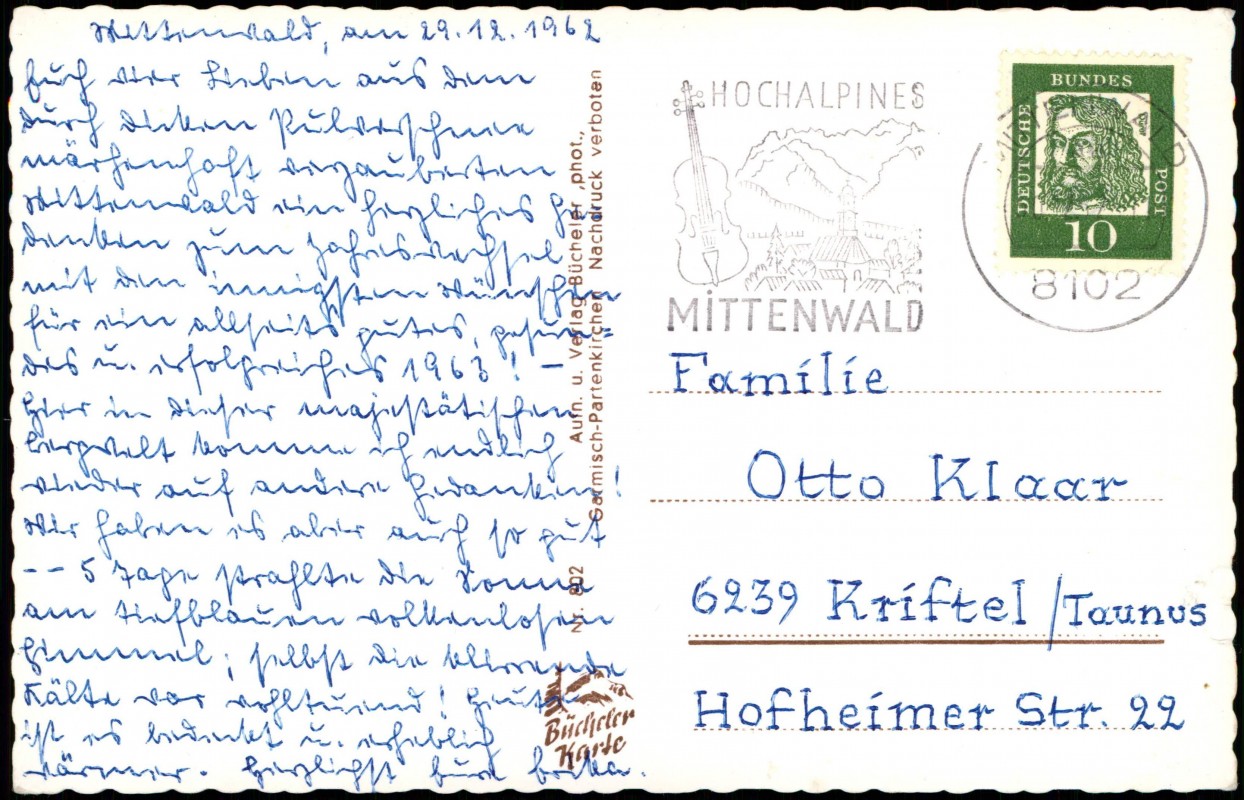 Mittenwald, am 29.12.1962
Euch vier Lieben aus dem
durch dicken Pulverschnee
märchenhaft verzauberten
Mittenwald ein herzliches Ge
denken zum Jahreswechsel
mit den innigsten Wünschen
für ein allseits gutes, gesun=
des u. erfolgreiches 1963! –
Hier in dieser majestätischen
Bergwelt komme ich endlich
wieder auf andere Gedanken!
Wir haben es aber auch so gut
-- 5 Tage strahlte die Sonne
am tiefblauen wolkenlosen
Himmel; selbst die klirrende
Kälte war wohltuend! Heute
ist es bedeckt u. erheblich
wärmer. Herzlichst Eure Erika.
Nr. 802 Aufn. u. Verlag Bücheler „phot.,
Garmisch-Partenkirchen Nachdruck verboten
Bücheler
Karte
HOCHALPINES
MITTENWALD
MITTENWALD
8102
DEUTSCHE
BUNDES
POST
10
Familie
Otto Klaar
6239 Kriftel/Taunus
Hofheimer Str. 22